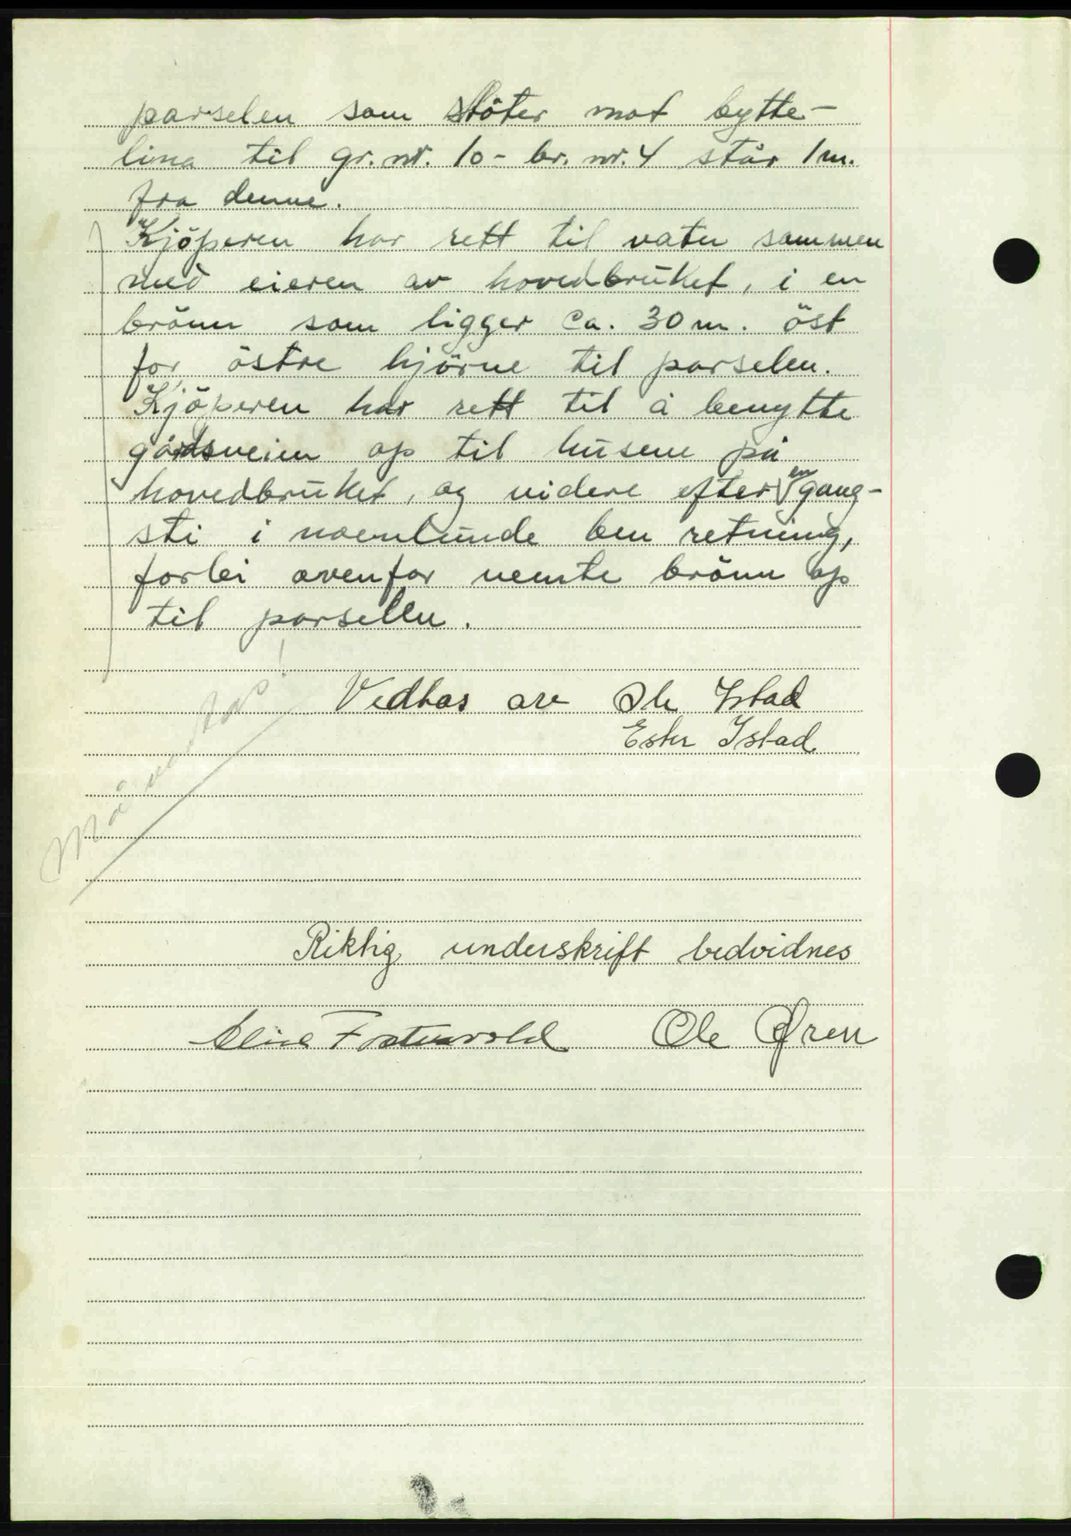 parselen som støter mot bytte-
lina til gr. nr. 10 - br. nr. 4 står 1 m.
fra denne.
Kjöperen har rett til vatn sammen
med eieren av hovedbruket, i en
brönn som ligger ca. 30 m. öst
for östre hjörne til parselen.
Kjöperen har rett til å benytte
gårdsveien op til husene på
hovedbruket, og videre efter en gang-
sti i noenlunde ben retning,
forbi ovenfor nemte brönn op
til parsellen.
Må vedtas!
Vedtas av Ole Istad
Ester Istad
Riktig underskrift bevidnes
Ole Øren